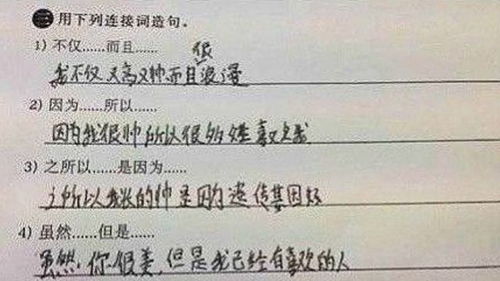 三 用下列连接词造句。
1) 不仅……而且……
我不仅又高又帅而且很浪漫
2) 因为……所以……
因为我很帅所以很多姓喜欢我
3) 之所以……是因为……
之所以我长的帅是因为遗传基因好
4) 虽然……但是……
虽然,你很美,但是我已经有喜欢的人